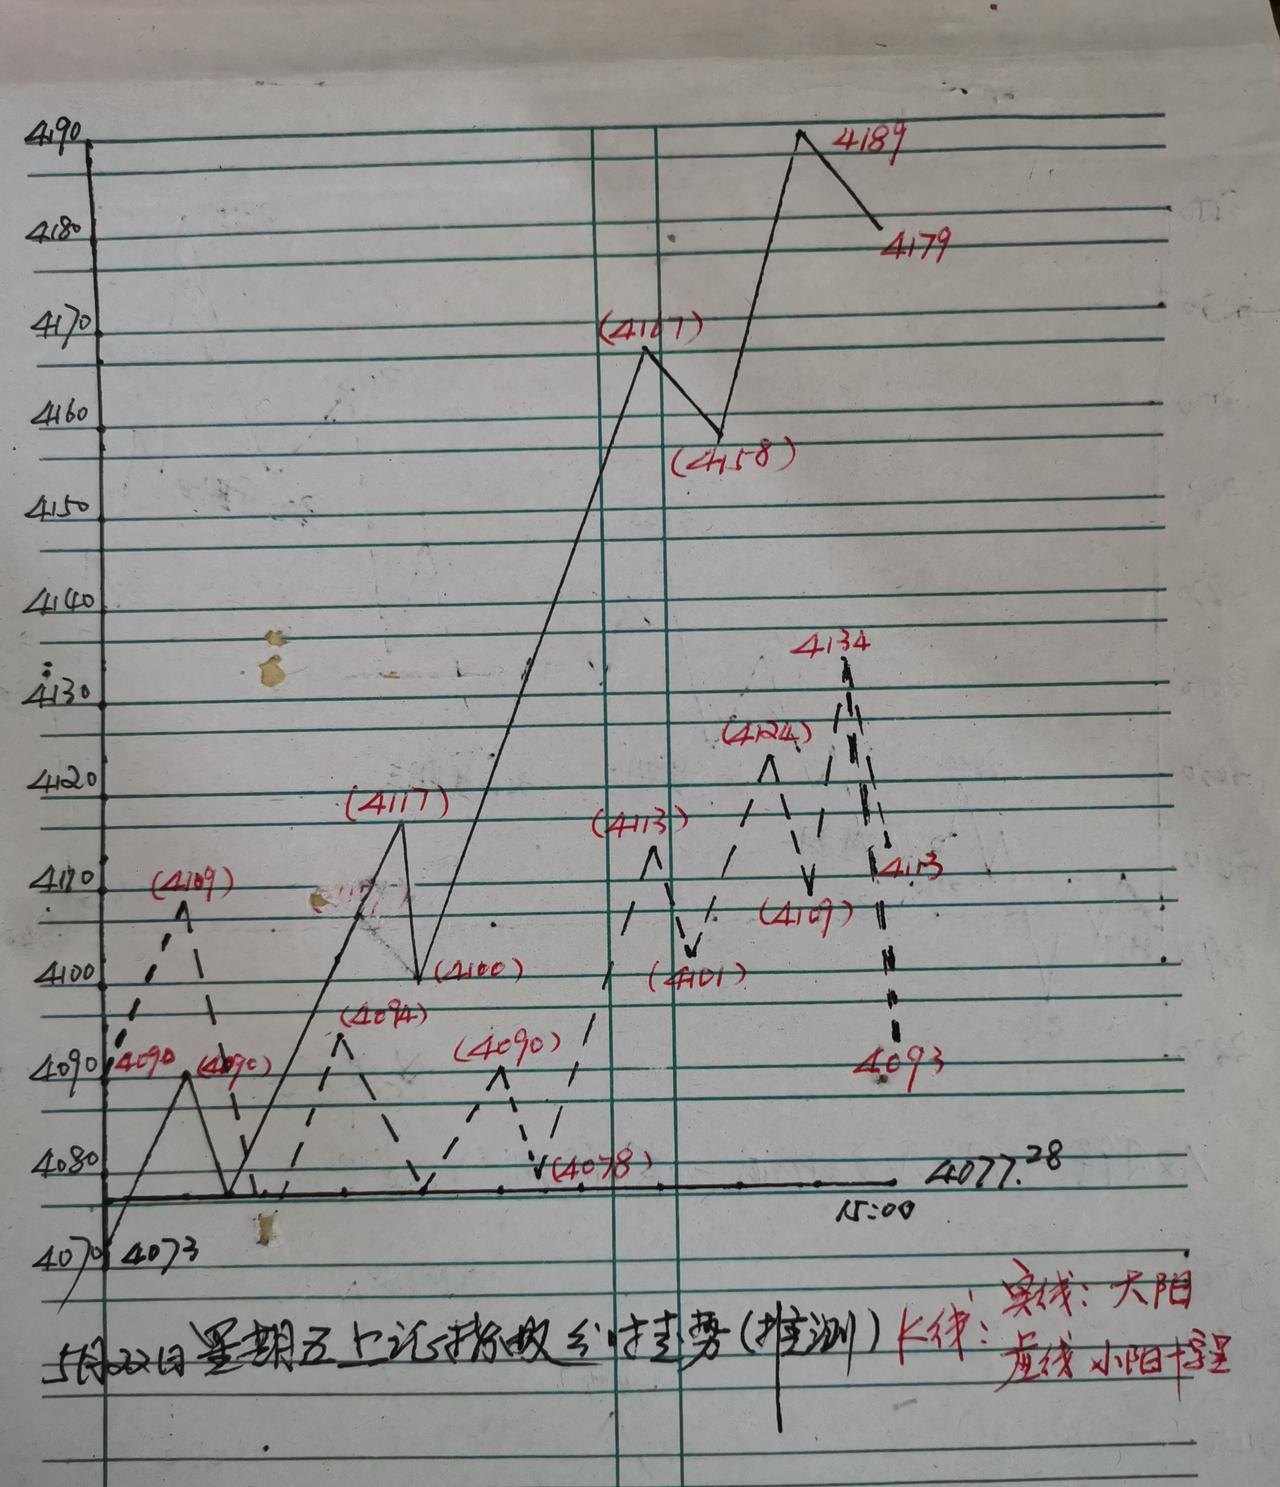 4190
4189
4180
4179
4170
(4167)
4160
(4158)
4150
4140
4134
4130
(4124)
4120
(4117)
(4113)
4110
(4109)
4113
(4109)
4100
(4100)
(4101)
(4094)
(4090)
4090
4090
(4090)
4093
4080
(4078)
4077.28
15:00
4070
4073
5月22日星期五上证指数分时走势(推测)
K线:
实线:大阳
虚线 小阳十字星